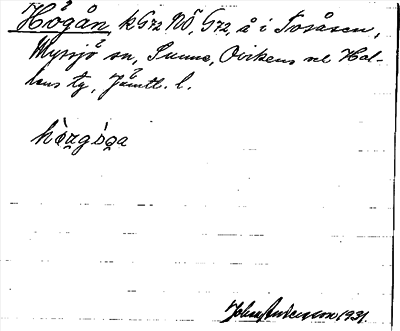 Högån, kG72 NÖ, G72, å i Tosåsen,
Myssjö sn, Sunne, Ovikens ɔ Hal-
lens tg, Jämtl. l.
hö̀zgɔ̀ga
John Anderson 1931.